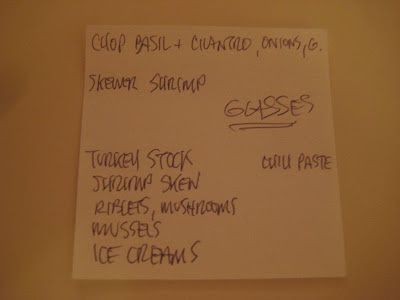 CHOP BASIL + CILANTRO, ONIONS, G.
SKEWER SHRIMP
GLASSES
TURKEY STOCK
CHILI PASTE
SHRIMP SKEW
RIBLETS, MUSHROOMS
MUSSELS
ICE CREAMS